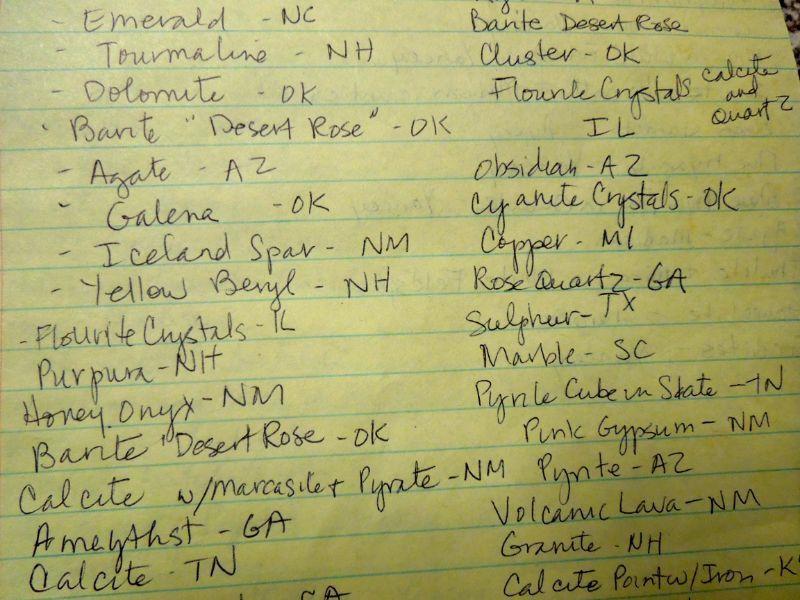 - Emerald - NC
- Tourmaline - NH
- Dolomite - OK
- Barite "Desert Rose" - OK
- Agate - AZ
- Galena - OK
- Iceland Spar - NM
- Yellow Beryl - NH
- Flourite Crystals - IL
Purpura - NH
Honey Onyx - NM
Barite "Desert Rose - OK
Calcite w/Marcasite + Pyrate - NM
Ameythst - GA
Calcite - TN
GA
Barite Desert Rose
Cluster - OK
Flourite Crystals
calcite
and
Quartz
IL
Obsidian - AZ
Cyanite Crystals - OK
Copper - MI
Rose Quartz - GA
Sulphur - TX
Marble - SC
Pyrite Cube in Slate - TN
Pink Gypsum - NM
Pyrite - AZ
Volcanic Lava - NM
Granite - NH
Calcite Point w/Iron -